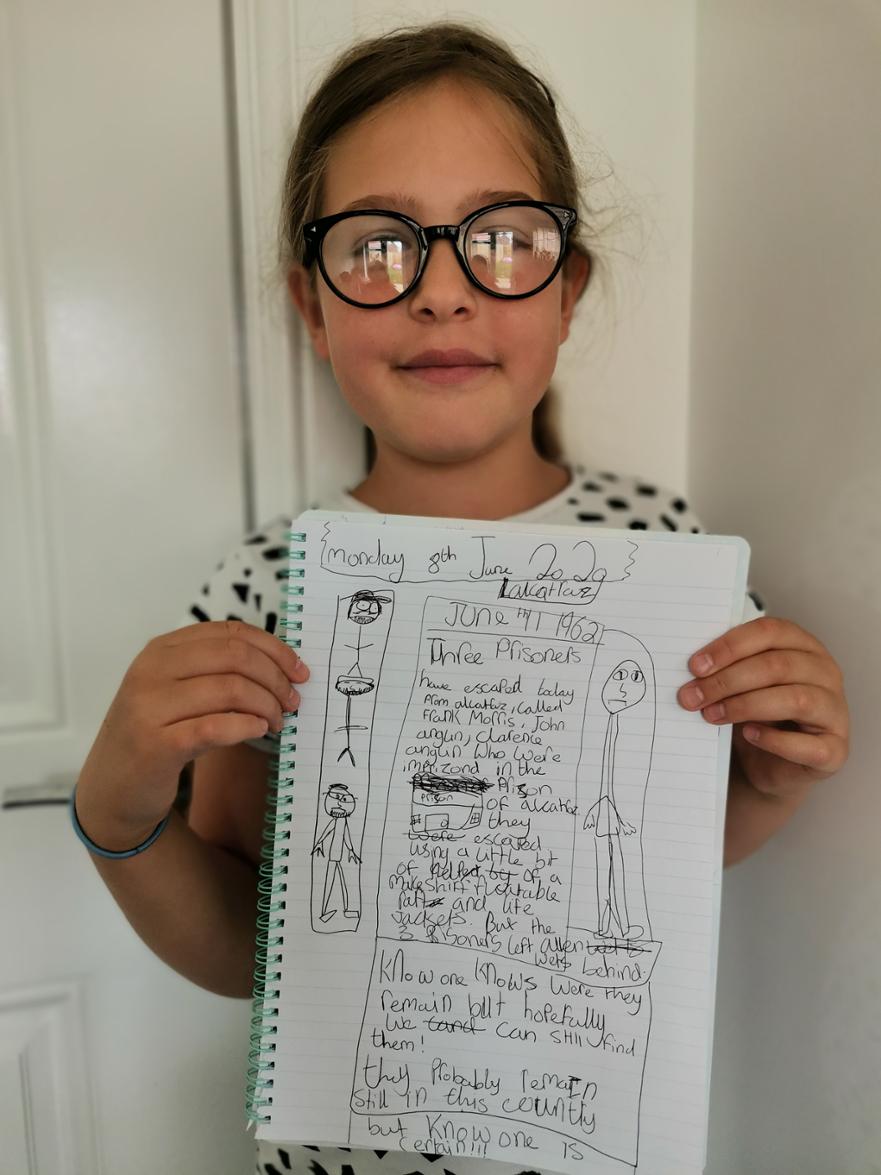 Monday 8th June 2020
alcatraz
JUNE 11 1962
Three Prisoners
have escaped today
from alcatraz, called
Frank Morris, John
anglin, clarence
anglin who were
in the
Prison
prison
of alcatraz
they
were escaped
using a little bit
of helped by of a
makeshift floatable
raft and life
Jackets. But the
3 Prisoners left allen
were behind.
Know one knows were they
remain but hopefully
we can still find
them!
they Probably remain
still in this country
but Know one is
certain!!!